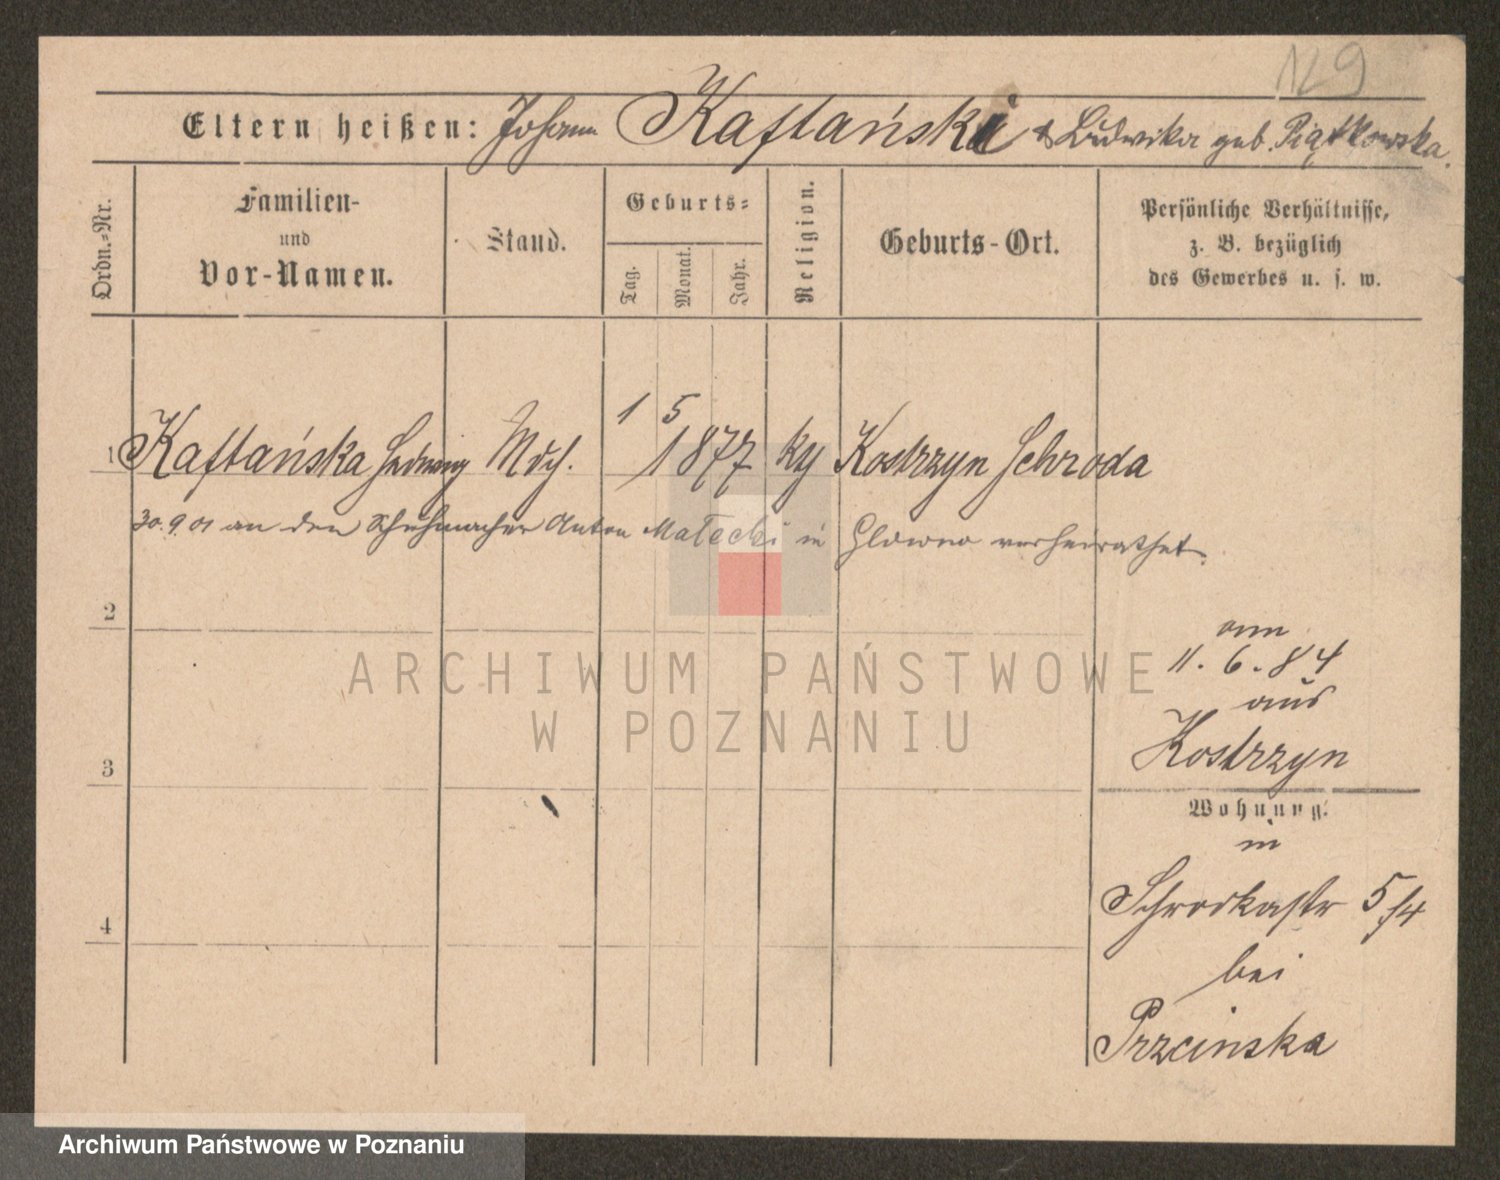 129
Eltern heißen: Johann Kaftański & Ludwika geb. Piątkowska.
Ordn.=Nr.
Familien-
und
Vor-Namen.
Stand.
Geburts=
Tag.
Monat.
Jahr.
Religion.
Geburts-Ort.
Persönliche Verhältnisse,
z. B. bezüglich
des Gewerbes u. s. w.
1 5
1 Kaftańska Hedwig Mdch. 1877 ky Kostrzyn Schroda
30.9.01 an den Schuhmacher Anton Małecki in Glowno verheirathet.
2
am
11.6.84
aus
Kostrzyn
3
Wohnung.
in
Schrodkastr 5/4
4
bei
Przcinska
ARCHIWUM PAŃSTWOWE
W POZNANIU
Archiwum Państwowe w Poznaniu